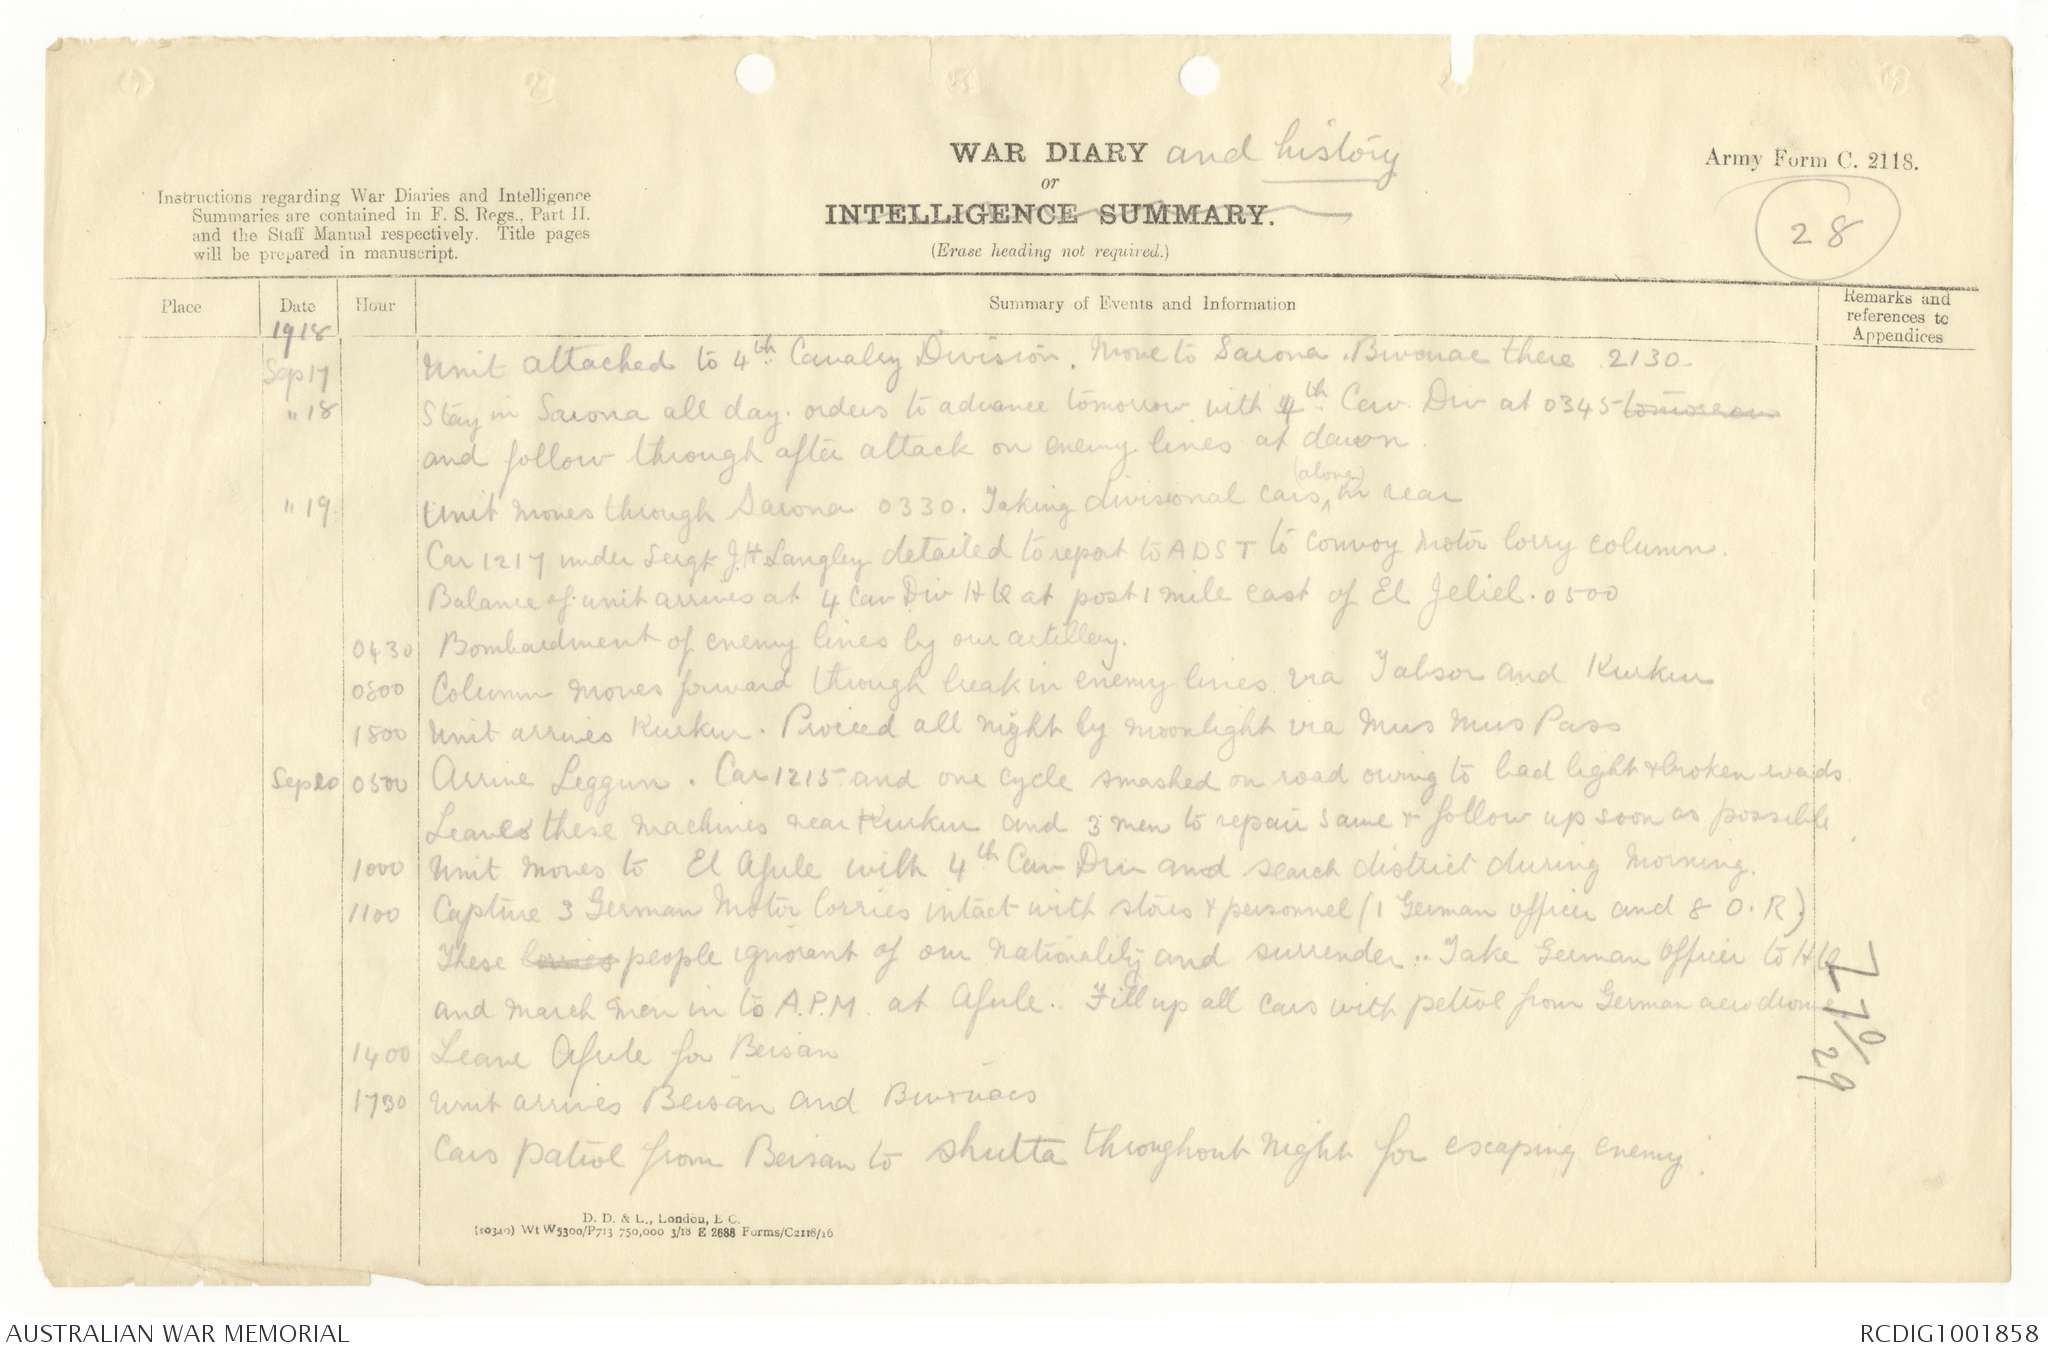 WAR DIARY and history
or
INTELLIGENCE SUMMARY.
(Erase heading not required.)
Army Form C. 2118.
28
Instructions regarding War Diaries and Intelligence
Summaries are contained in F. S. Regs., Part II.
and the Staff Manual respectively. Title pages
will be prepared in manuscript.
Place Date Hour Summary of Events and Information Remarks and
references to
Appendices
1918
Sep 17 Unit attached to 4th Cavalry Division. Move to Sarona. Bivouac there 2130.
" 18 Stay in Sarona all day. orders to advance tomorrow with 4th Cav. Div at 0345 tomorrow
and follow through after attack on enemy lines at dawn.
(along)
" 19. Unit moves through Sarona 0330. Taking divisional cars, in rear
Car 1217 under Sergt J.H Langley detailed to report to ADST to convoy motor lorry column.
Balance of unit arrives at 4 Cav Div HQ at post 1 mile east of El Jeliel. 0500
0430 Bombardment of enemy lines by our artillery.
0800 Column moves forward through break in enemy lines via Tabsor and Kurkur
1800 Unit arrives Kurkur. Proceed all night by moonlight via Mus Mus Pass
Sep 20 0500 Arrive Leggun. Car 1215 and one cycle smashed on road owing to bad light & broken roads.
Leaves these machines near Kurkur and 3 men to repair same & follow up soon as possible.
1000 Unit moves to El Afule with 4th Cav Div and search district during morning.
1100 Capture 3 German Motor lorries intact with stores & personnel (1 German officer and 8 O.R).
These lorries people ignorant of our nationality and surrender.. Take German Officer to HQ
and march men in to A.P.M. at Afule.. Fill up all cars with petrol from German aerodrome
1400 Leave Afule for Beisan
1730 Unit arrives Beisan and Bivouacs
Cars patrol from Beisan to Shutta throughout night for escaping enemy.
D. D. & L., London, E C.
(10340) Wt W5300/P713 750,000 3/18 E 2688 Forms/C2118/16
AUSTRALIAN WAR MEMORIAL
RCDIG1001858